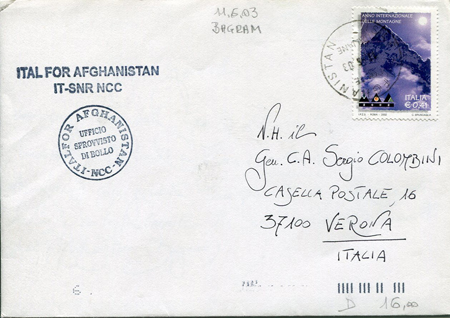 11.6.03
BAGRAM
ITALFOR AFGHANISTAN
IT-SNR NCC
ITALFOR AFGHANISTAN
-NCC-
UFFICIO
SPROVVISTO
DI BOLLO
ANNO INTERNAZIONALE
DELLE MONTAGNE
ITALIA
€ 0,41
N.H. il
Gen. C.A. Sergio COLOMBINI
CASELLA POSTALE, 16
37100 VERONA
ITALIA
D 16,00